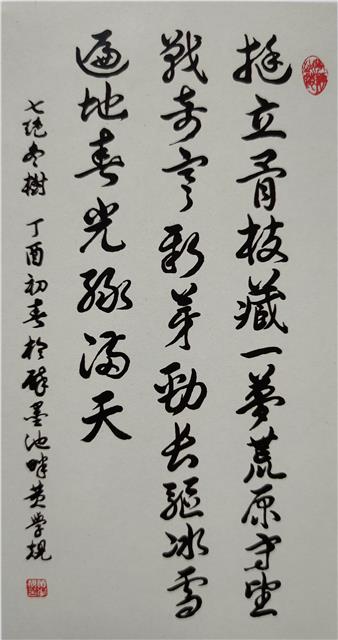 挺立骨枝藏一夢荒原守望
戰奇寒新芽勁長驅冰雪
遍地春光綠滿天
七絕冬樹 丁酉初春於墨池畔黃學規